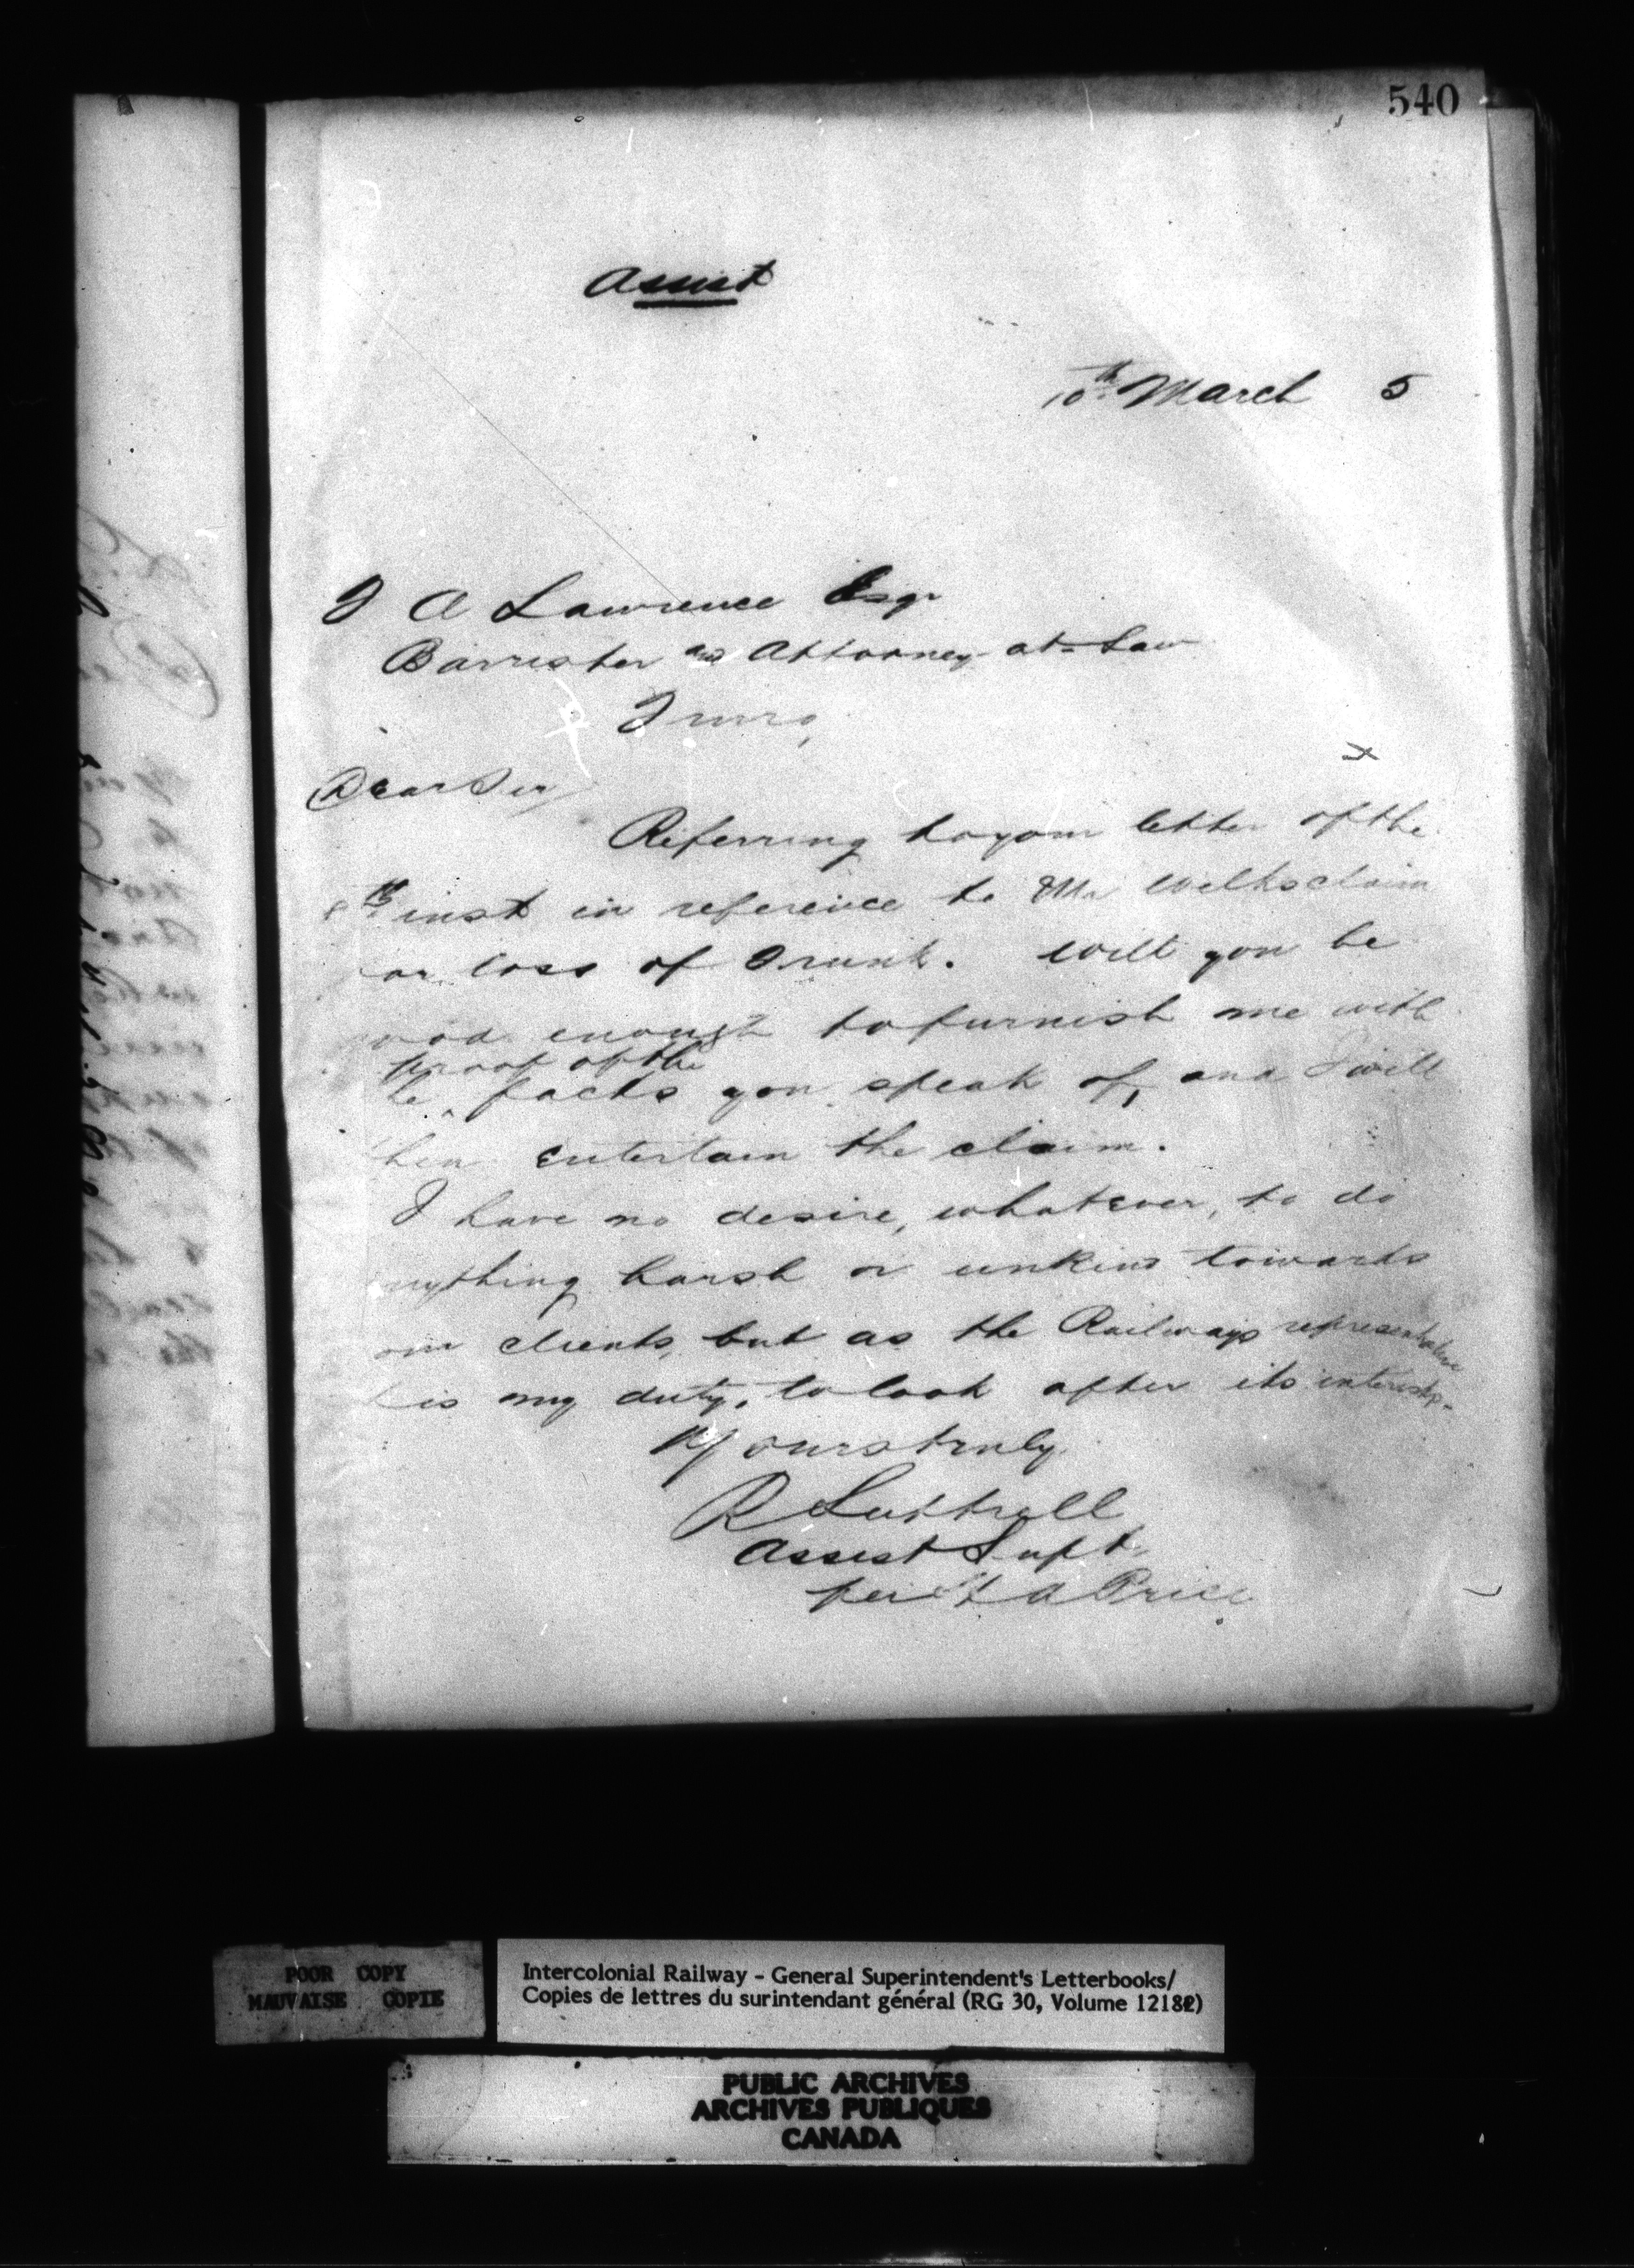 540
Assist
10th March 5
F A Lawrence Esqr
Barrister and Attorney-at-Law
Truro,
Dear Sir
Referring to your letter of the
8th inst in reference to Mr claim
or loss of Trunk. Will you be
ood enough to furnish me with
proof of the
he ^ facts you speak of, and I will
hen entertain the claim.
I have no desire, whatever, to do
nything harsh or unkind towards
our clients, but as the Railways representative
t is my duty, to look after its interests.
Yours truly
R Luttrell
Assist Supt,
per Price
POOR COPY
MAUVAISE COPIE
Intercolonial Railway - General Superintendent's Letterbooks/
Copies de lettres du surintendant général (RG 30, Volume 12182)
PUBLIC ARCHIVES
ARCHIVES PUBLIQUES
CANADA